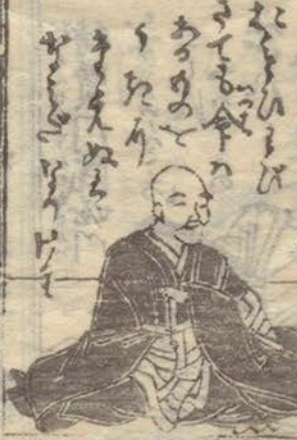 おもひわび
さても命は
あるものを
うきに
たえぬは
なみだなりけり